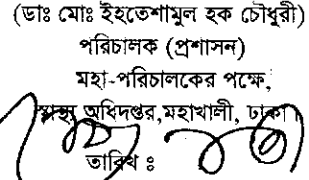 (ডাঃ মোঃ ইহতেশামুল হক চৌধুরী)
পরিচালক (প্রশাসন)
মহা-পরিচালকের পক্ষে,
স্বাস্থ্য অধিদপ্তর,মহাখালী, ঢাকা।
তারিখ ঃ